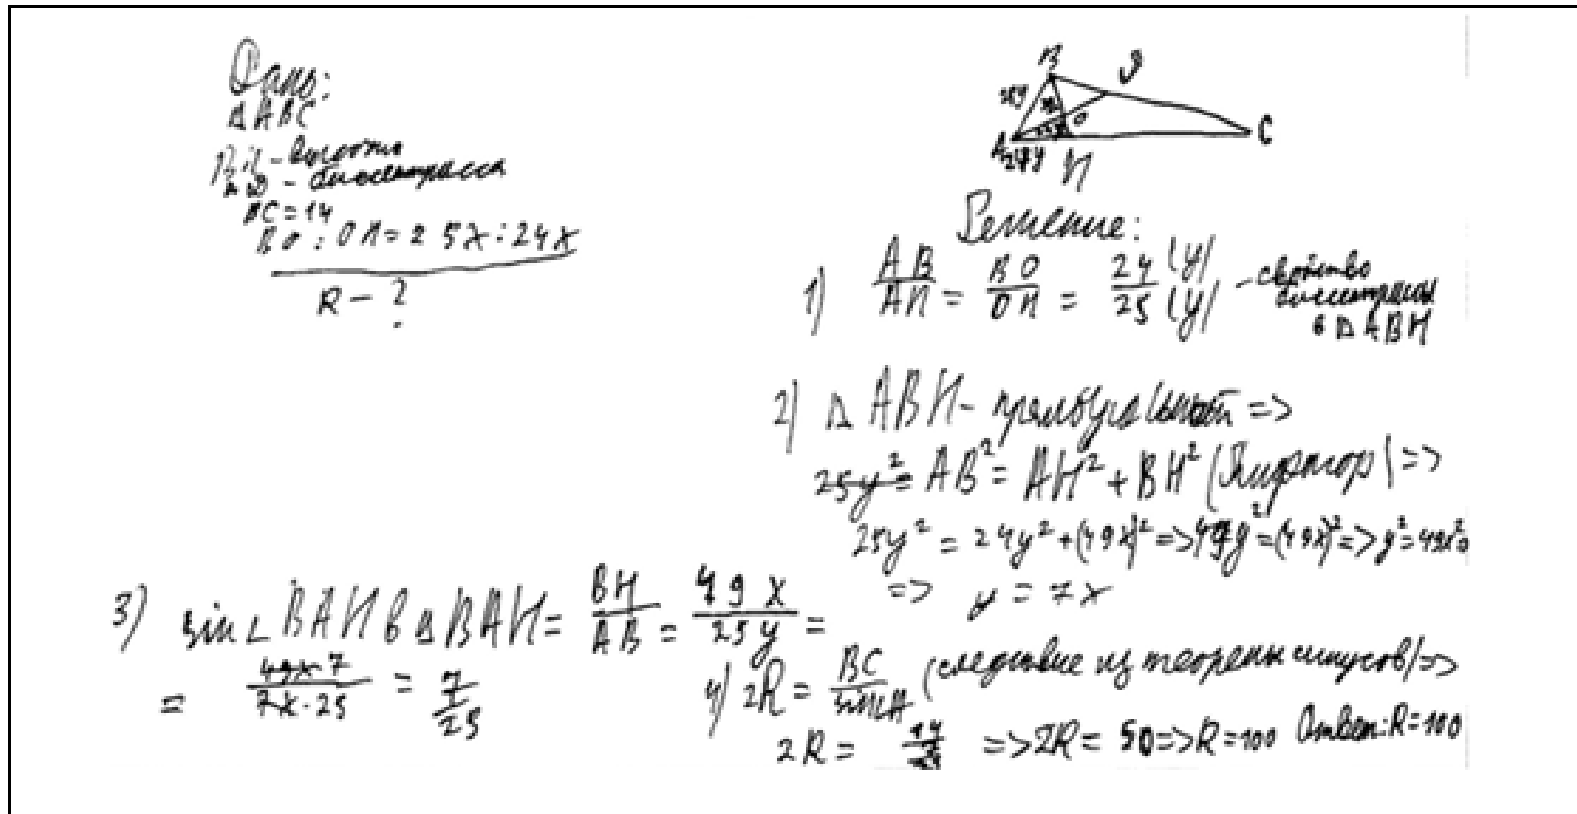 Дано:
ΔABC
BH - высота
AD - биссектриса
BC = 14
BO : OH = 25x : 24x
R - ?
B
D
O
A
H
C
Решение:
1) AB/AH = BO/OH = 24(y)/25(y) - свойство биссектрисы в ΔABH
2) Δ ABH - прямоугольный =>
AB² = AH² + BH² (Пифагор) =>
25y² = 24y² + (49x)² => 49y² = (49x)² => y² = 49x²
=> y = 7x
3) sin∠BAH в ΔBAH = BH/AB = 49x/25y =
= 49x·7/7x·25 = 7/25
4) 2R = BC/sin∠A (следствие из теоремы синусов) =>
2R = => 2R = 50 => R = 100 Ответ: R = 100